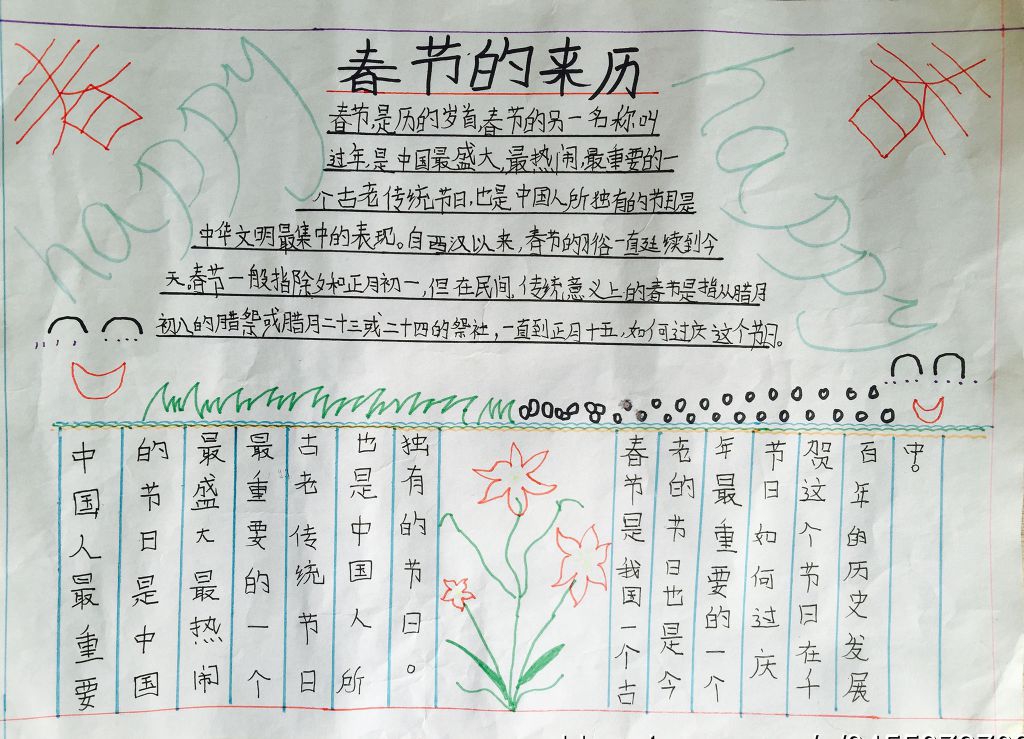 春 happy
春节的来历
happy 春
春节,是历的岁首,春节的另一名称叫
过年,是中国最盛大,最热闹,最重要的一
个古老传统节日,也是中国人所独有的节日是
中华文明最集中的表现。自西汉以来,春节的习俗一直延续到今
天。春节一般指除夕和正月初一,但在民间,传统意义上的春节是指从腊月
初八的腊祭或腊月二十三或二十四的祭社,一直到正月十五,如何过庆这个节日。
中国人最重要
的节日是中国
最盛大最热闹
最重要的一个
古老传统节日
也是中国人所
独有的节日。
春节是我国一个古
老的节日也是今
年最重要的一个
节日如何过庆
贺这个节日在千
百年的历史发展
中。